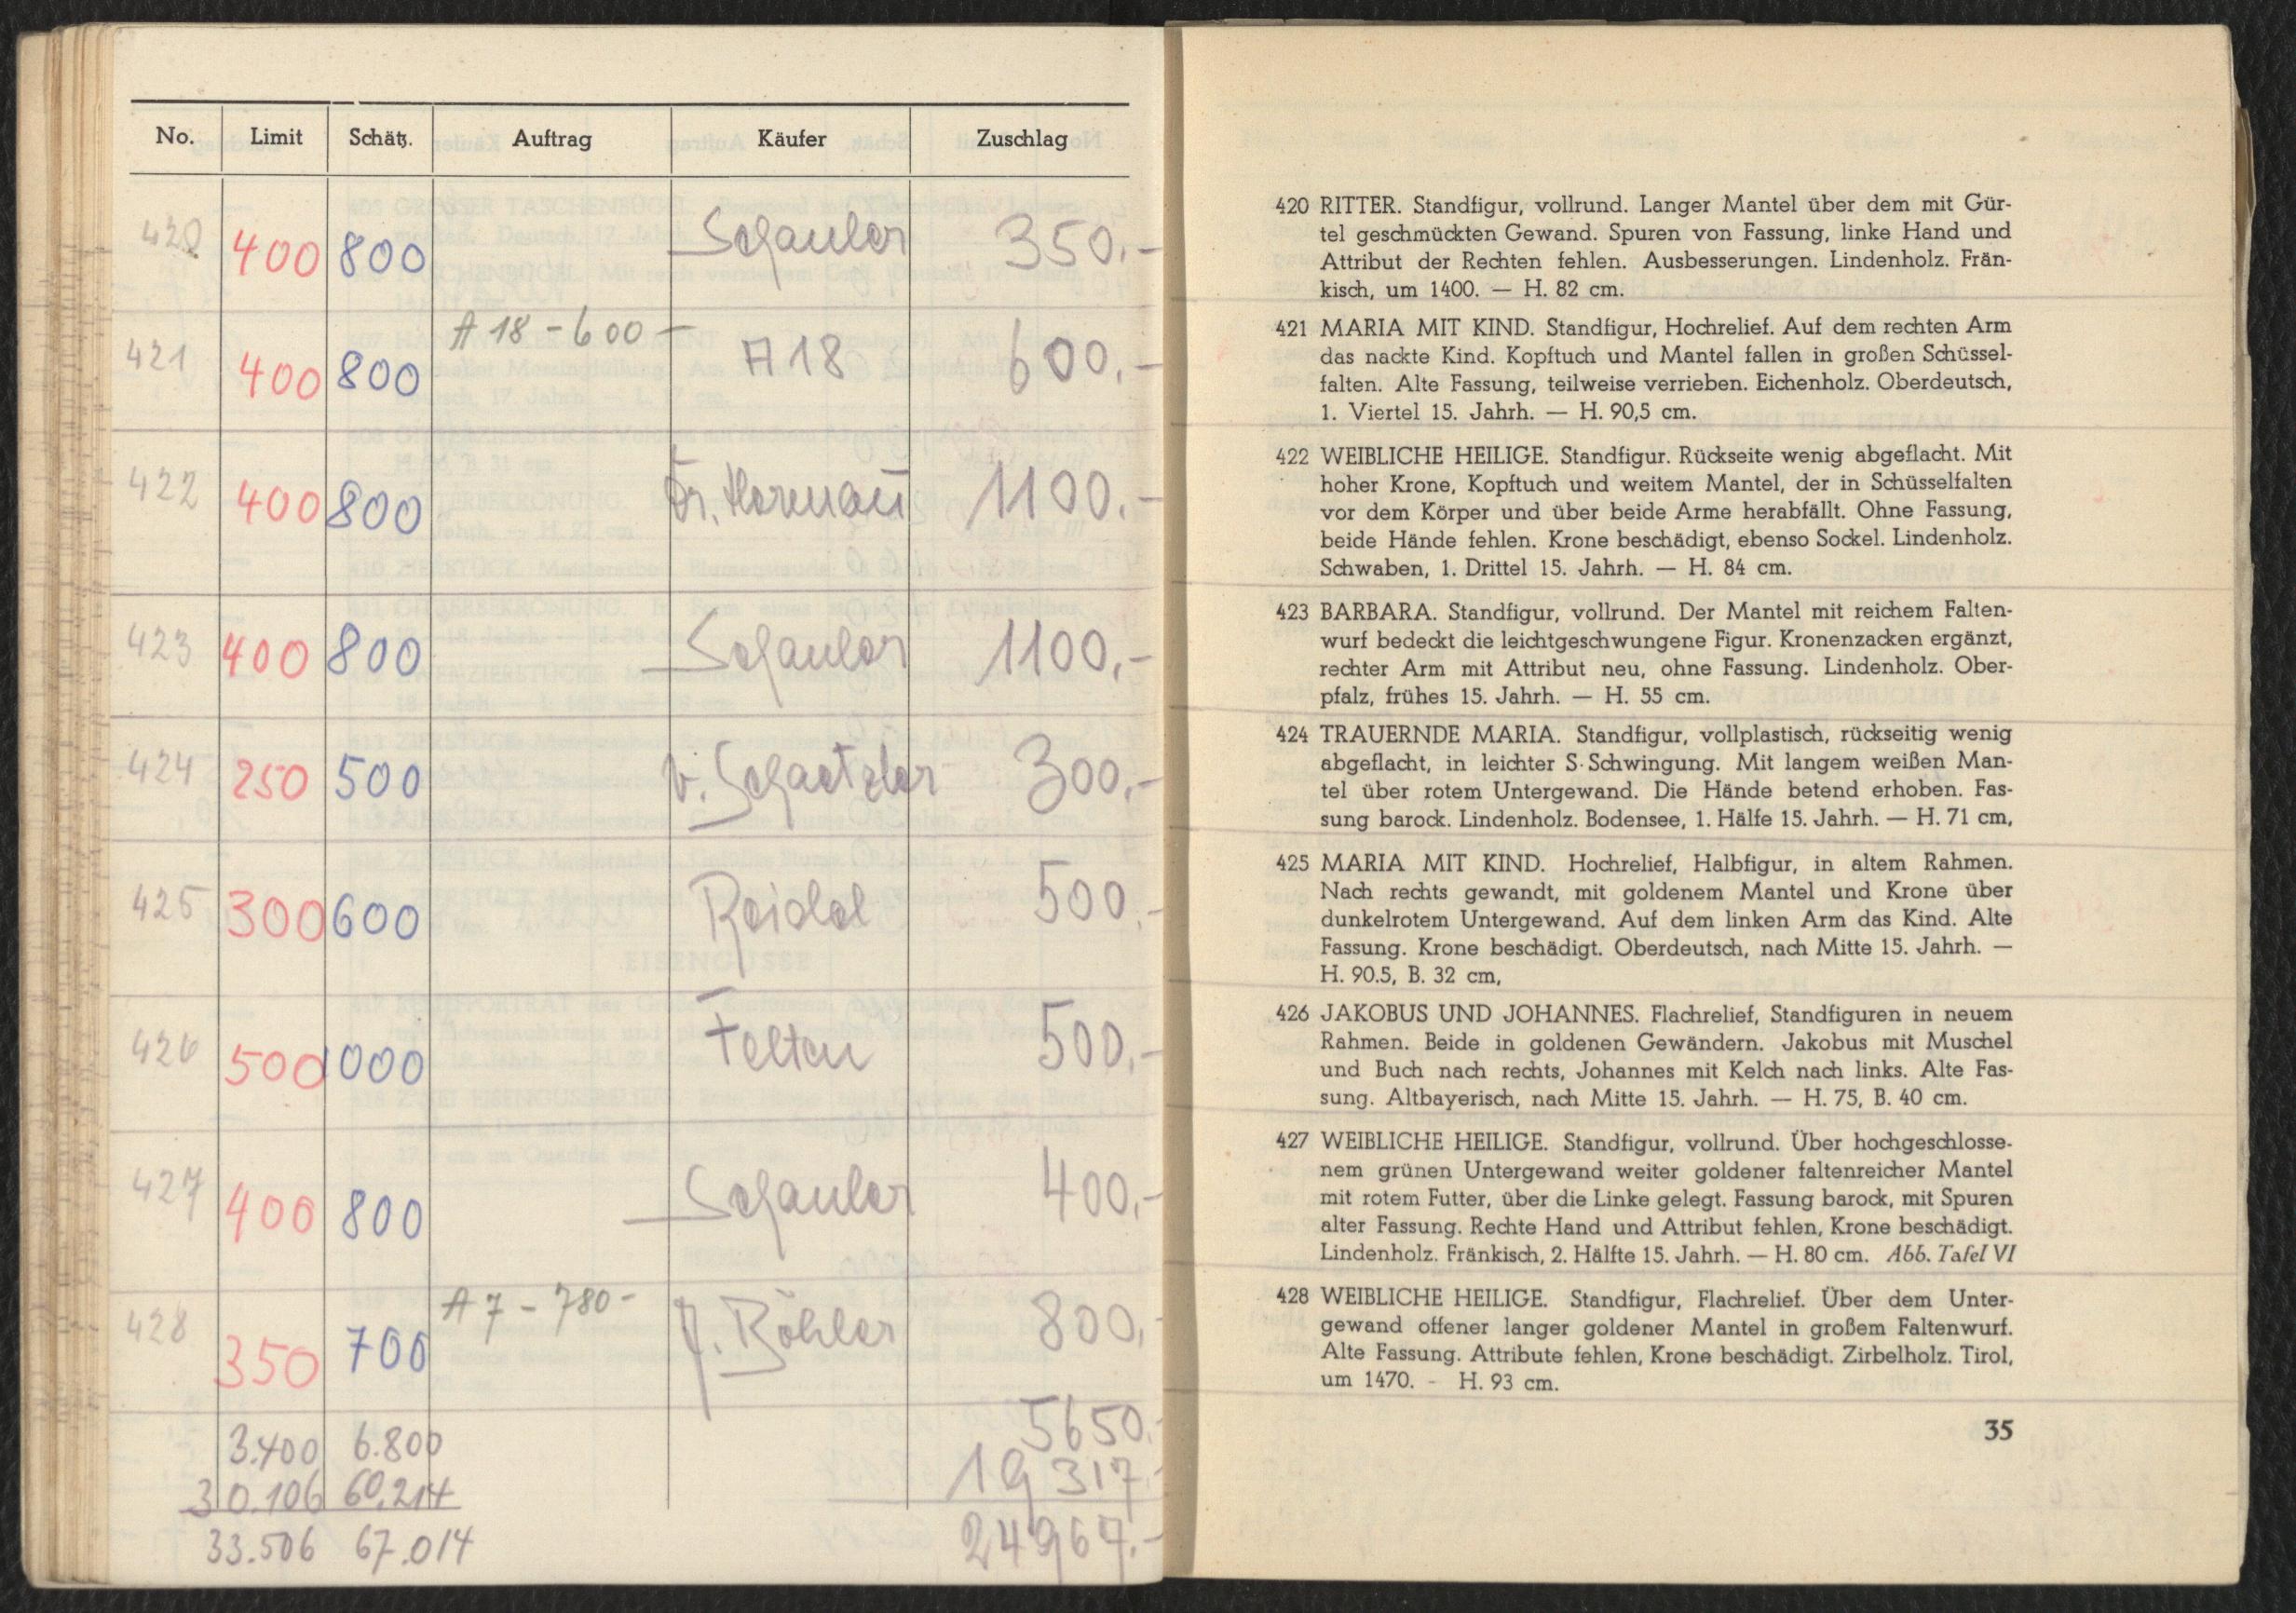 No. Limit Schätz. Auftrag Käufer Zuschlag
420 400 800 350.-
421 400 800 A 18 - 600 - A 18 600.-
422 400 800 1100.-
423 400 800 1100.-
424 250 500 300.-
425 300 600 500.-
426 500 1000 Felten 500.-
427 400 800 400.-
428 350 700 A 7 - 780 - J. Böhler 800.-
3.400 6.800 5650.-
30.106 60.214 19317.-
33.506 67.014 24967.-
420 RITTER. Standfigur, vollrund. Langer Mantel über dem mit Gür-
tel geschmückten Gewand. Spuren von Fassung, linke Hand und
Attribut der Rechten fehlen. Ausbesserungen. Lindenholz. Frän-
kisch, um 1400. — H. 82 cm.
421 MARIA MIT KIND. Standfigur, Hochrelief. Auf dem rechten Arm
das nackte Kind. Kopftuch und Mantel fallen in großen Schüssel-
falten. Alte Fassung, teilweise verrieben. Eichenholz. Oberdeutsch,
1. Viertel 15. Jahrh. — H. 90,5 cm.
422 WEIBLICHE HEILIGE. Standfigur. Rückseite wenig abgeflacht. Mit
hoher Krone, Kopftuch und weitem Mantel, der in Schüsselfalten
vor dem Körper und über beide Arme herabfällt. Ohne Fassung,
beide Hände fehlen. Krone beschädigt, ebenso Sockel. Lindenholz.
Schwaben, 1. Drittel 15. Jahrh. — H. 84 cm.
423 BARBARA. Standfigur, vollrund. Der Mantel mit reichem Falten-
wurf bedeckt die leichtgeschwungene Figur. Kronenzacken ergänzt,
rechter Arm mit Attribut neu, ohne Fassung. Lindenholz. Ober-
pfalz, frühes 15. Jahrh. — H. 55 cm.
424 TRAUERNDE MARIA. Standfigur, vollplastisch, rückseitig wenig
abgeflacht, in leichter S-Schwingung. Mit langem weißen Man-
tel über rotem Untergewand. Die Hände betend erhoben. Fas-
sung barock. Lindenholz. Bodensee, 1. Hälfte 15. Jahrh. — H. 71 cm,
425 MARIA MIT KIND. Hochrelief, Halbfigur, in altem Rahmen.
Nach rechts gewandt, mit goldenem Mantel und Krone über
dunkelrotem Untergewand. Auf dem linken Arm das Kind. Alte
Fassung. Krone beschädigt. Oberdeutsch, nach Mitte 15. Jahrh. —
H. 90.5, B. 32 cm,
426 JAKOBUS UND JOHANNES. Flachrelief, Standfiguren in neuem
Rahmen. Beide in goldenen Gewändern. Jakobus mit Muschel
und Buch nach rechts, Johannes mit Kelch nach links. Alte Fas-
sung. Altbayerisch, nach Mitte 15. Jahrh. — H. 75, B. 40 cm.
427 WEIBLICHE HEILIGE. Standfigur, vollrund. Über hochgeschlosse-
nem grünen Untergewand weiter goldener faltenreicher Mantel
mit rotem Futter, über die Linke gelegt. Fassung barock, mit Spuren
alter Fassung. Rechte Hand und Attribut fehlen, Krone beschädigt.
Lindenholz. Fränkisch, 2. Hälfte 15. Jahrh. — H. 80 cm. Abb. Tafel VI
428 WEIBLICHE HEILIGE. Standfigur, Flachrelief. Über dem Unter-
gewand offener langer goldener Mantel in großem Faltenwurf.
Alte Fassung. Attribute fehlen, Krone beschädigt. Zirbelholz. Tirol,
um 1470. - H. 93 cm.
35